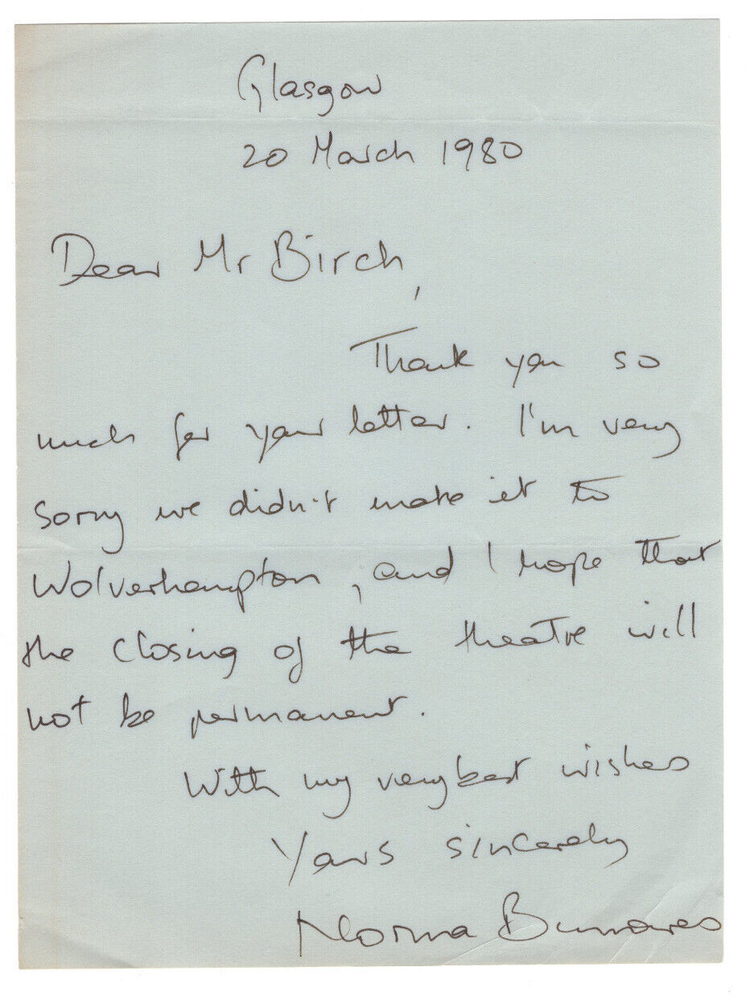 Glasgow
20 March 1980
Dear Mr Birch,
Thank you so
much for your letter. I'm very
sorry we didn't make it to
Wolverhampton, and I hope that
the closing of the theatre will
not be permanent.
With my very best wishes
Yours sincerely
Norma Burrowes